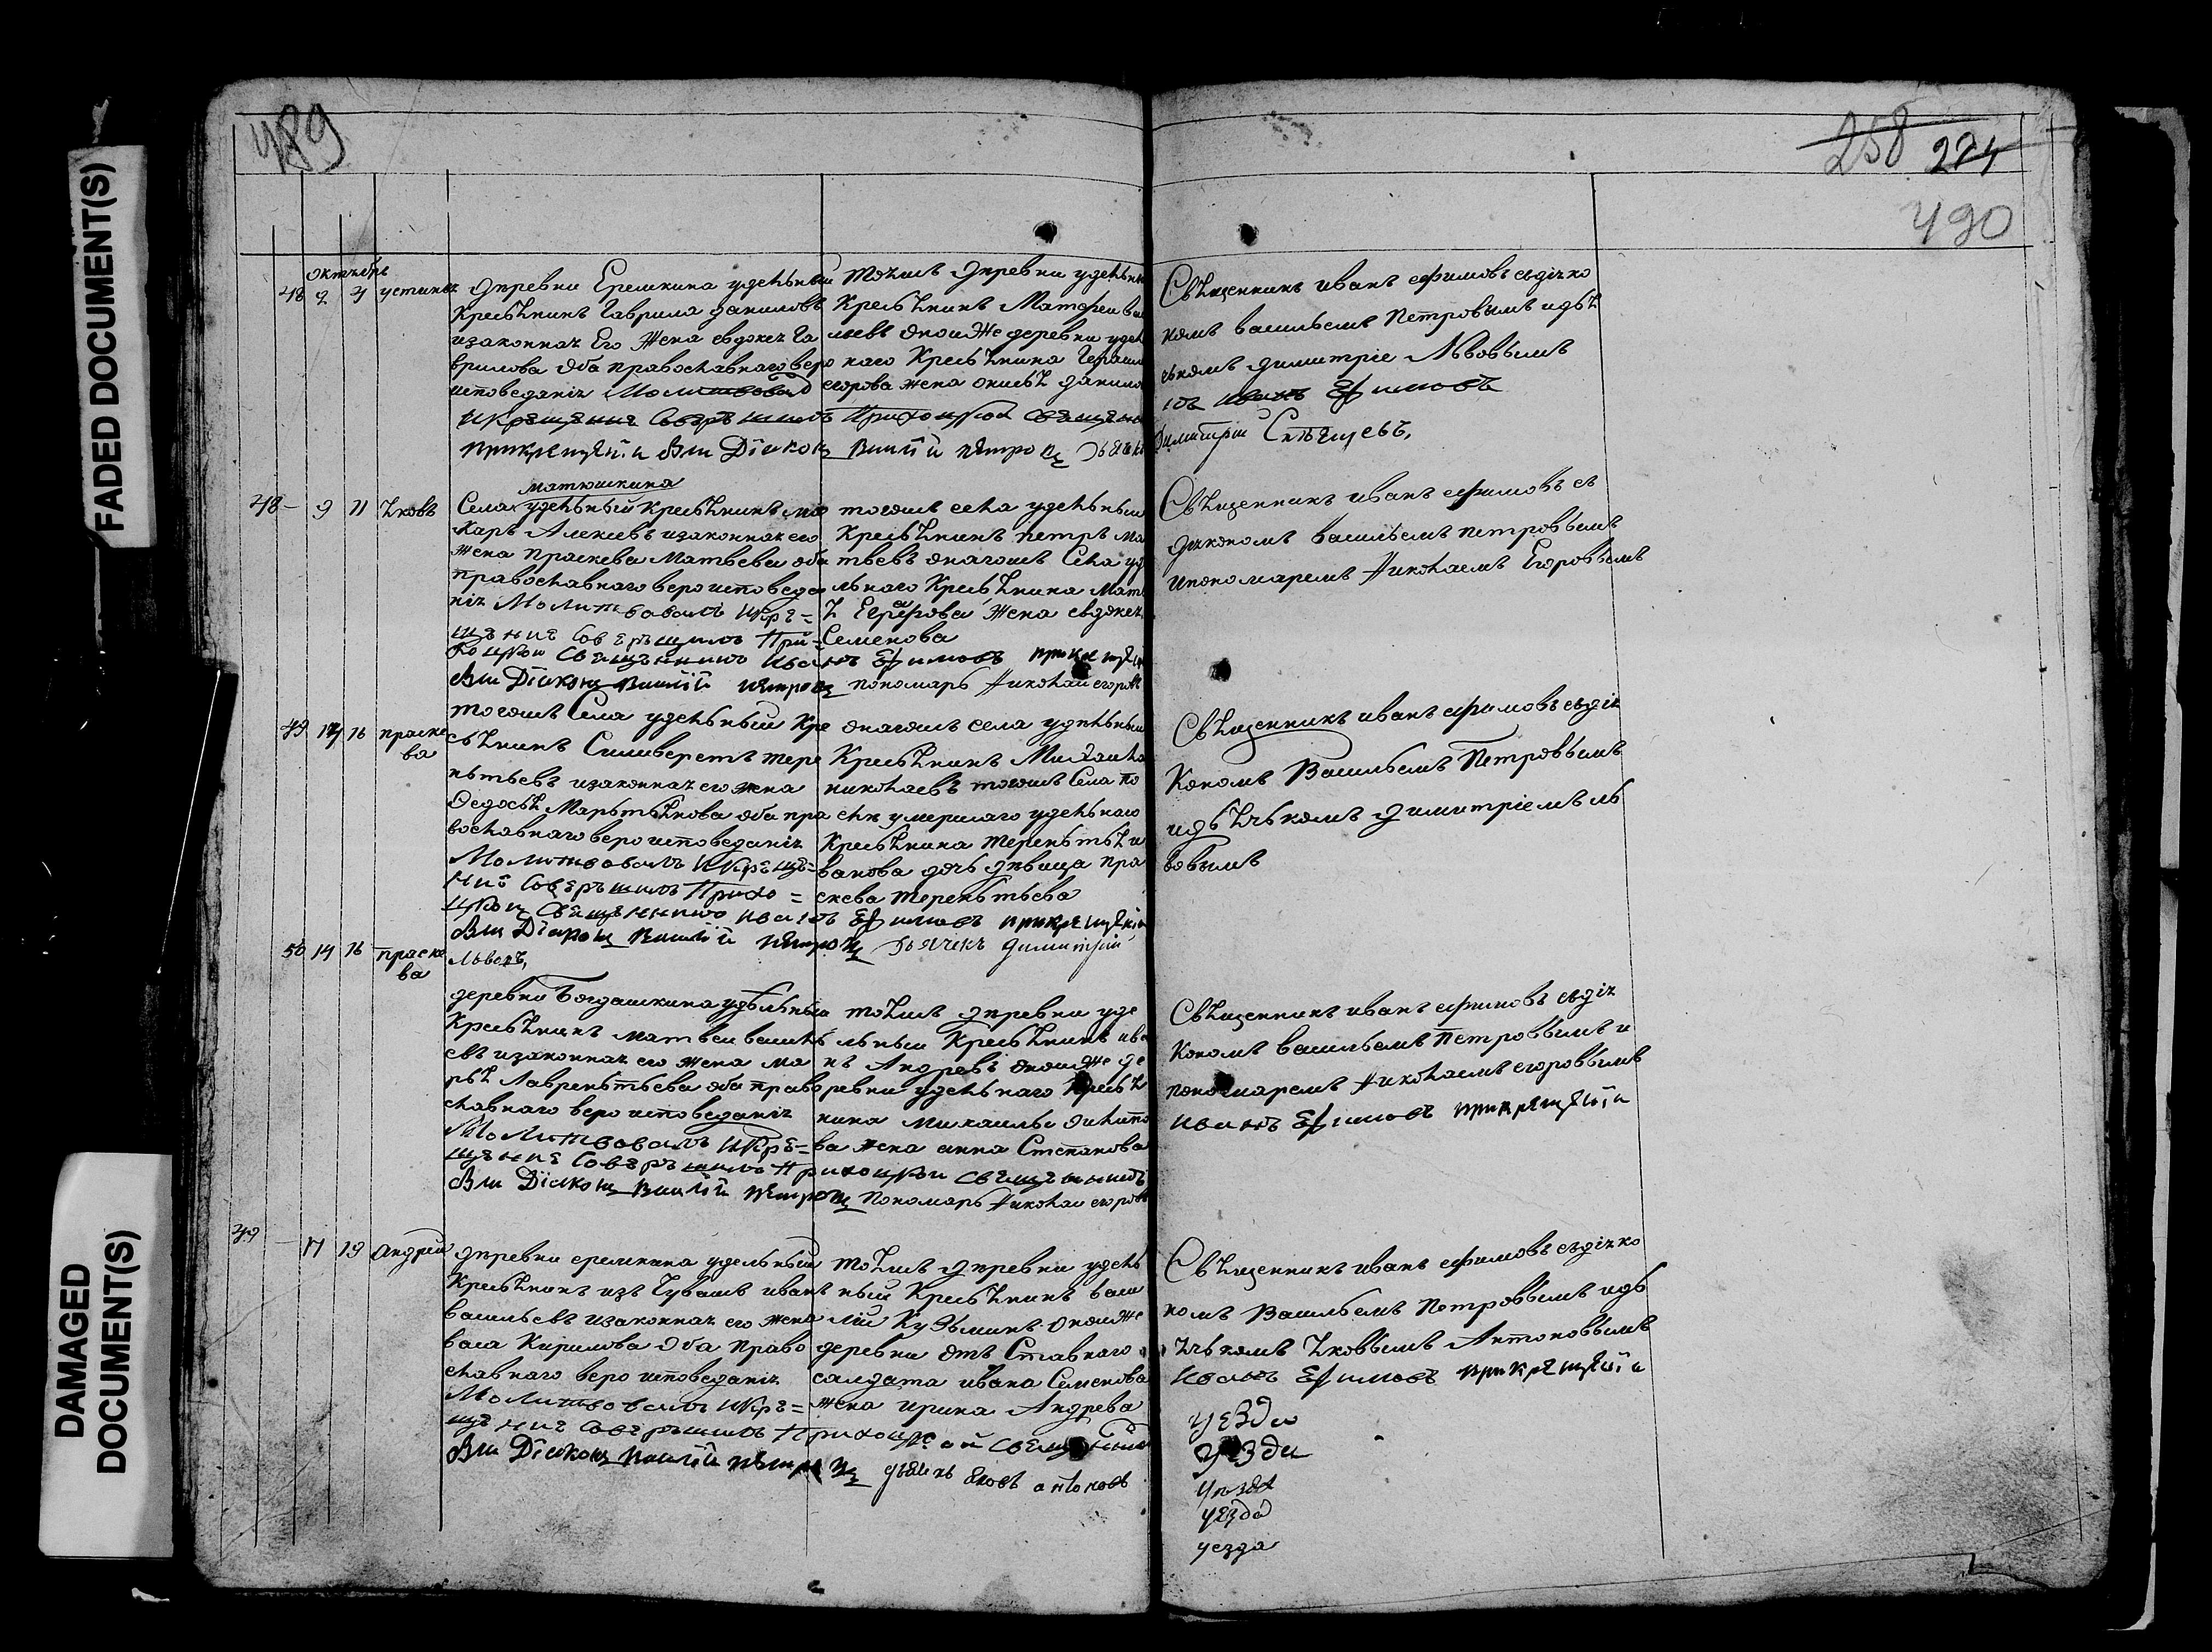 FADED DOCUMENT(S)
DAMAGED
DOCUMENT(S)
489
258 274
490
октябрь
48 2 4 устинья
деревни Еремкина удельный
Кресьянинъ Гаврила даниловъ
изаконная Его Жена евдокея Га
врилова оба православнаго веро
исповеданія Молитвовалъ
и Крещение Соверъшилъ Приходской Священникъ
при крещеніи былъ Діаконъ Василій Петровъ дьячекъ
тояжъ деревни удельный
Кресьянинъ Матфеи
оной Же деревни удел
наго Кресьянина Герасим
егорова жена анисья данило
Священникъ иванъ ефимовъ сдіако
номъ васильемъ Петровымъ идья
чкомъ димитріе Львовымъ
иванъ Ефимовъ
Димитріи
48 - 9 11 Яковъ
матюшкина
Села удельный кресьянинъ ма
каръ Алексеевъ изаконная его
жена Праскева Матвеева оба
православнаго вероисповеда
нія Молитвовалъ и Кре=
щение Соверъшилъ При=
ходской Священникъ иванъ Ефимовъ при крещеніи
былъ Діаконъ Василій Петровъ пономарь Николай егоровъ
тогожъ села удельный
Кресьянинъ петръ ма
твевъ онагожъ Села уд
льнаго Кресьянина Мат
жена евдокея
Семенова
Священникъ иванъ ефимовъ съ
дьякономъ васильемъ петровымъ
ипономаремъ Николаемъ Егоровымъ
49 14 16 праске
ва
тогожъ Села удельный Кре
сьянинъ Силиверстъ тере
нтьевъ изаконная его жена
Федосья Мартьянова оба пра
вославнаго вероисповеданія
Молитвовалъ и Креще=
ние Соверъшилъ Прихо=
дской Священникъ иванъ Ефимовъ при крещеніи
былъ Діаконъ Василій Петровъ дьячекъ димитрій
Львовъ,
онагожъ села удельный
Кресьянинъ Михаила
николаевъ тогожъ Села по
сля умершаго удельнаго
Кресьянина терентья и
ванова дочь девица пра
скева терентьева
Священникъ иванъ ефимовъ сдія
кономъ Васильемъ Петровымъ
идьячькомъ димитріемъ ль
вовымъ
50 14 16 праске
ва
деревни Богдашкина удельный
Кресьянинъ матвеи василь
евъ изаконная его жена ма
рья Лаврентьева оба право
славнаго вероисповеданія
Молитвовалъ и Кре=
щение Соверъшилъ Приходской Священникъ
былъ Діаконъ Василій Петровъ Пономарь Николаи егоровъ
тояжъ деревни уде
льный Кресьянинъ ива
нъ Андревъ оной Же де
ревни удельнаго Кресья
нина михаилы
ва жена анна Степанова
Священникъ иванъ ефимовъ сдія
кономъ васильемъ петровымъ и
пономаремъ Николаемъ егоровымъ
иванъ Ефимовъ при крещеніи
49 - 17 19 андрей
деревни еремкина удельный
Кресьянинъ изъ Чувашъ иванъ
васильевъ изаконная его жена
васа Кирилова Оба право
славнаго вероисповеданія
Молитвовалъ и Кре=
щение Соверъшилъ Приходской Священникъ
былъ Діаконъ Василій Петровъ дьячекъ яковъ антоновъ
тояжъ деревни удель
ный Кресьянинъ васи
лій Кузьминъ оной же
деревни отъ Ставнаго
салдата ивана Семенова
жена ирина Андрева
Священникъ иванъ ефимовъ сдіако
номъ Васильемъ Петровымъ идь
ячькомъ Яковымъ Антоновымъ
иванъ Ефимовъ при крещеніи
уезда
уезда
уѣзда
уезда
уезда